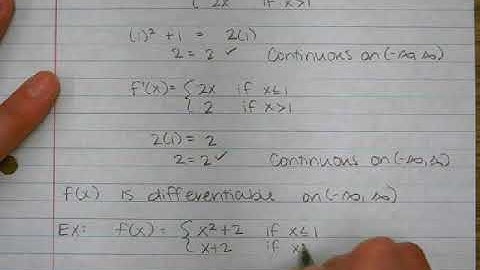 2x if x>1
(1)² + 1 = 2(1)
2 = 2 ✓ Continuous on (-∞,∞)
f'(x) = { 2x if x≤1
2 if x>1
2(1) = 2
2 = 2 ✓ Continuous on (-∞,∞)
f(x) is differentiable on (-∞,∞)
Ex: f(x) = { x²+2 if x≤1
x+2 if x